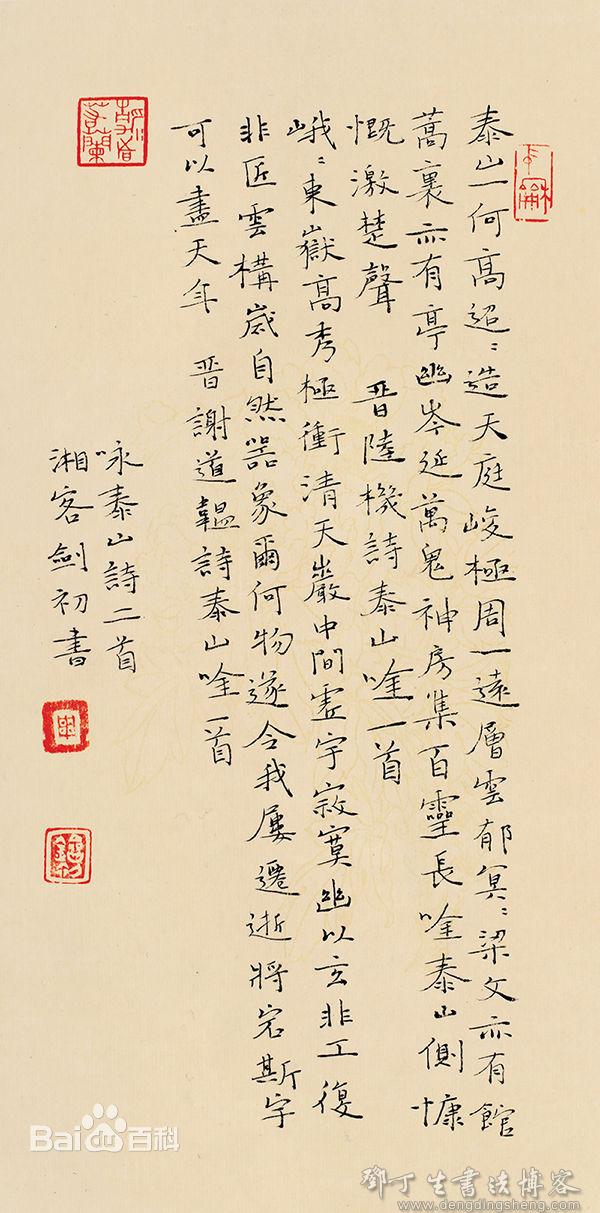 泰山一何高迢〻造天庭峻極周一遠層雲郁冥〻梁父亦有館
蒿裏亦有亭幽岑延萬鬼神房集百靈長唫泰山側慷
慨激楚聲 晉陸機詩泰山唫一首
峨〻東嶽高秀極衝清天巖中間虛宇寂寞幽以玄非工復
非匠雲構歲自然器象爾何物遂令我屢遷逝將宅斯宇
可以盡天年 晉謝道韞詩泰山唫一首
咏泰山詩二首
湘客劍初書
Bai du 百科
鄧丁生書法博客
www.dengdingsheng.com